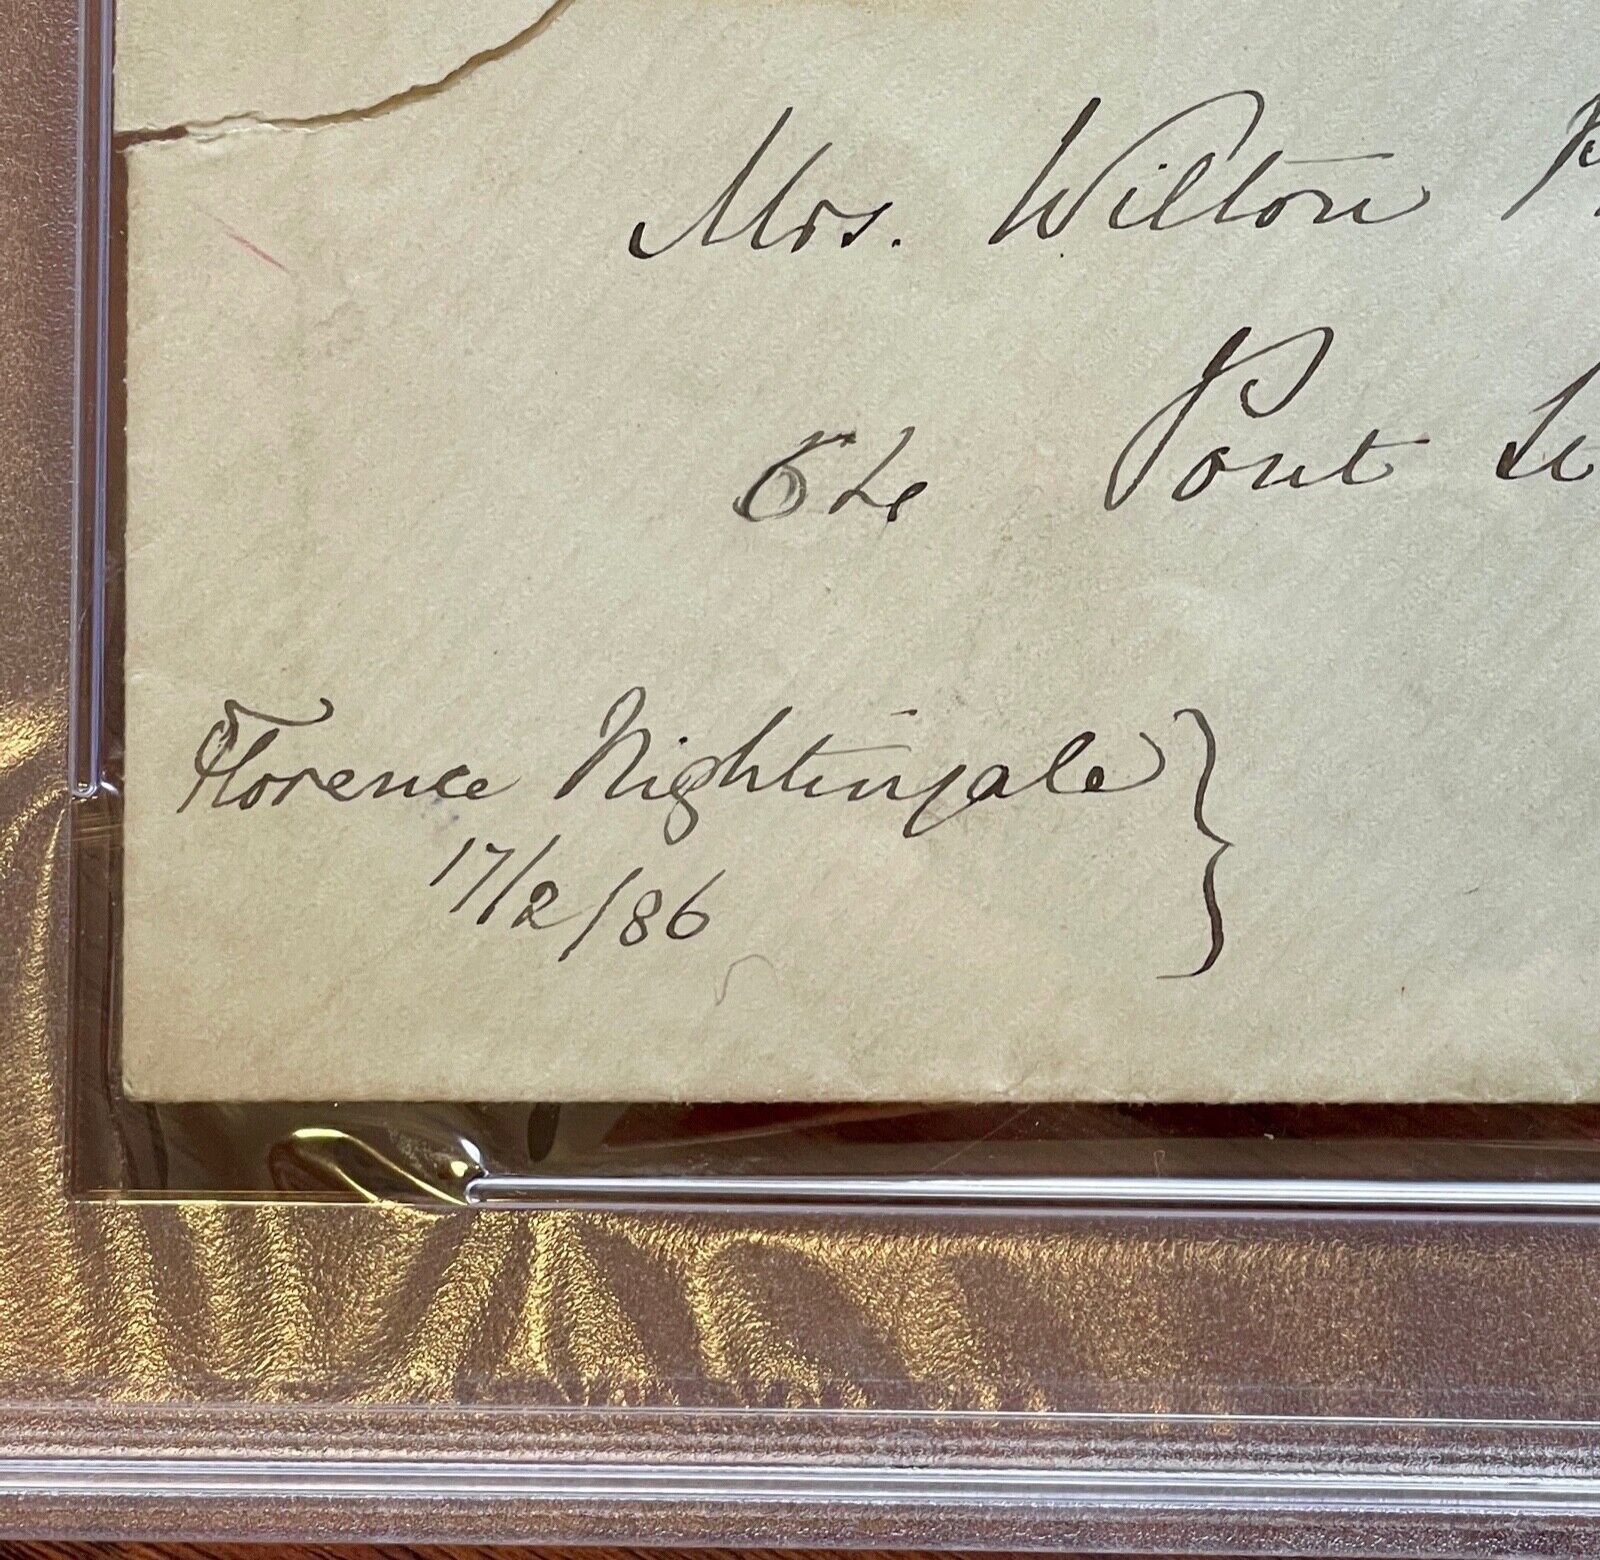 Mrs. Wilton
Pont
Florence Nightingale
17/2/86